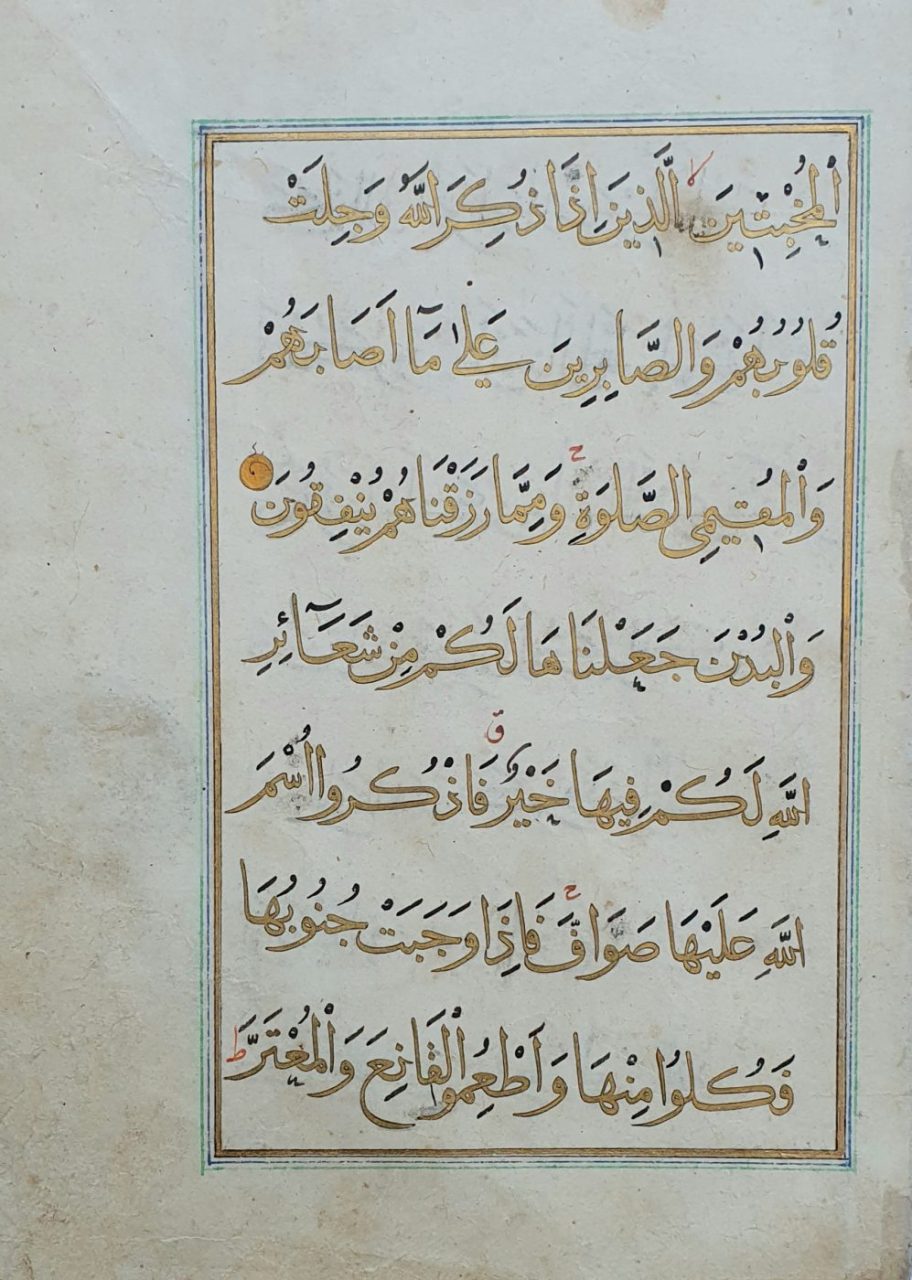 اَلْمُخْبِتٖينَ لا اَلَّذٖينَ اِذَا ذُكِرَ اللّٰهُ وَجِلَتْ
قُلُوبُهُمْ وَالصَّابِرِينَ عَلٰى مَٓا اَصَابَهُمْ
وَالْمُقٖيمِى الصَّلٰوةِ ح وَمِمَّا رَزَقْنَاهُمْ يُنْفِقُونَ
وَالْبُدْنَ جَعَلْنَاهَا لَكُمْ مِنْ شَعَٓائِرِ
اللّٰهِ لَكُمْ فِيهَا خَيْرٌ ق فَاذْكُرُوا اسْمَ
اللّٰهِ عَلَيْهَا صَوَافَّ ح فَاِذَا وَجَبَتْ جُنُوبُهَا
فَكُلُوا مِنْهَا وَاَطْعِمُوا الْقَانِعَ وَالْمُعْتَرَّ ط